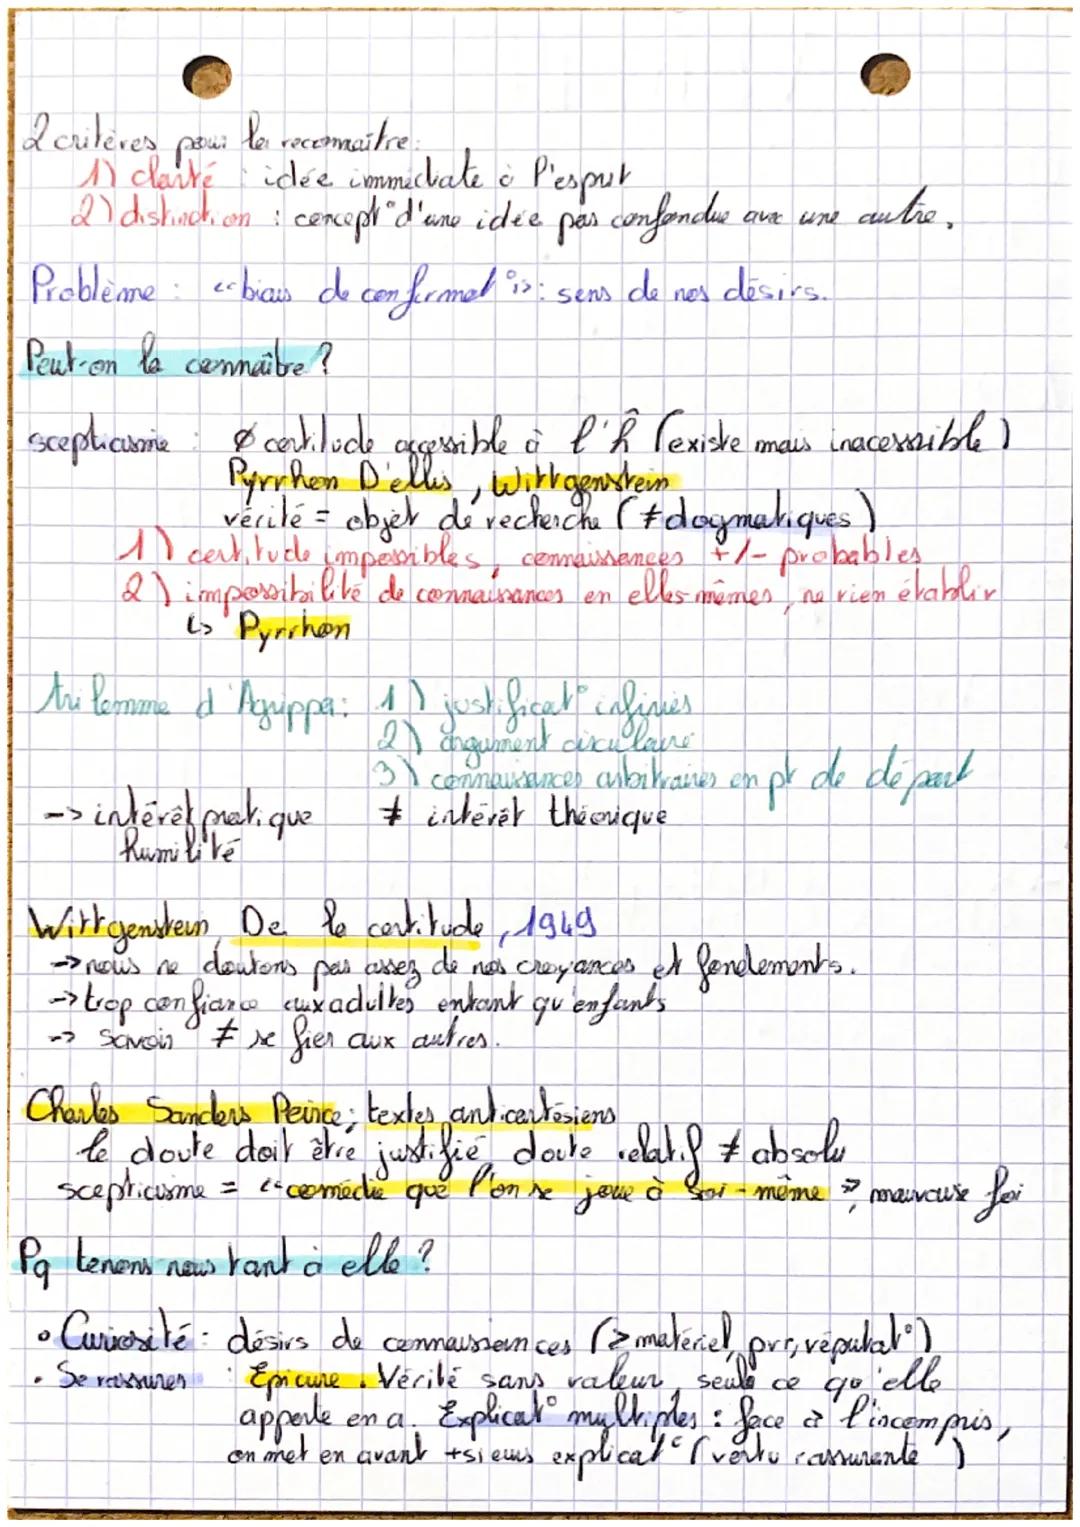 2 critères pour la reconnaître :
1) clarté : idée immédiate à l'esprit
2) distinction : concept° d'une idée pas confondue avec une autre.
Problème : "biais de confirmat°" : sens de nos désirs.
Peut-on la connaître ?
scepticisme : Ø certitude accessible à l'ĥ (existe mais inacessible)
Pyrrhon D'ellis, Wittgenstein
vérité = objet de recherche (≠ dogmatiques)
1) certitude impossibles, connaissances +/- probables
2) impossibilité de connaissances en elles-mêmes, ne rien établir
↳ Pyrrhon
trilemme d'Agrippa : 1) justificat° infinies
2) argument circulaire
3) connaissances arbitraires en pt de départ
-> intérêt pratique ≠ intérêt théorique
humilité
Wittgenstein, De la certitude, 1949
-> nous ne doutons pas assez de nos croyances et fondements.
-> trop confiance aux adultes entant qu'enfants
-> savoir ≠ se fier aux autres.
Charles Sanders Peirce ; textes anticartésiens
le doute doit être justifié, doute relatif ≠ absolu
scepticisme = "comédie que l'on se joue à soi-même", mauvaise foi
Pq tenons nous tant à elle ?
• Curiosité : désirs de connaissances (≥ matériel, pvr, réputat°)
• Se rassurer : Epicure. Vérité sans valeur, seule ce qu'elle
apporte en a. Explicat° multiples : face à l'incompris,
on met en avant +sieurs explicat° (vertu rassurante)